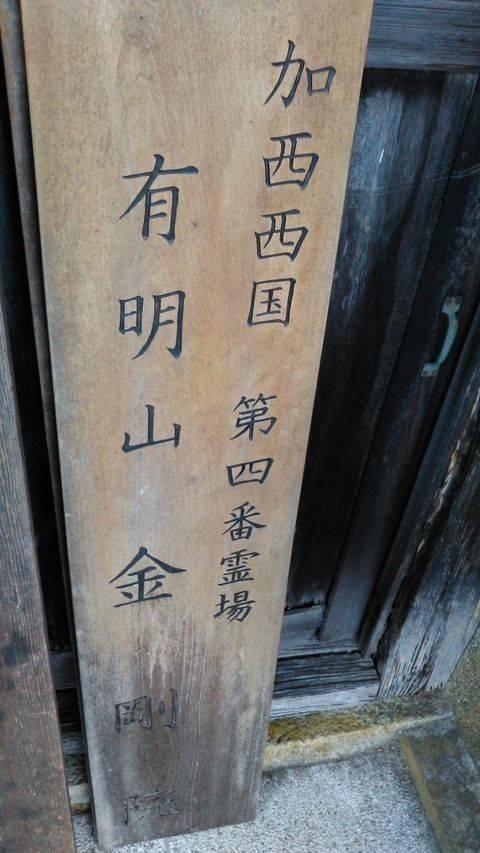 加西西国 第四番霊場
有明山金剛院